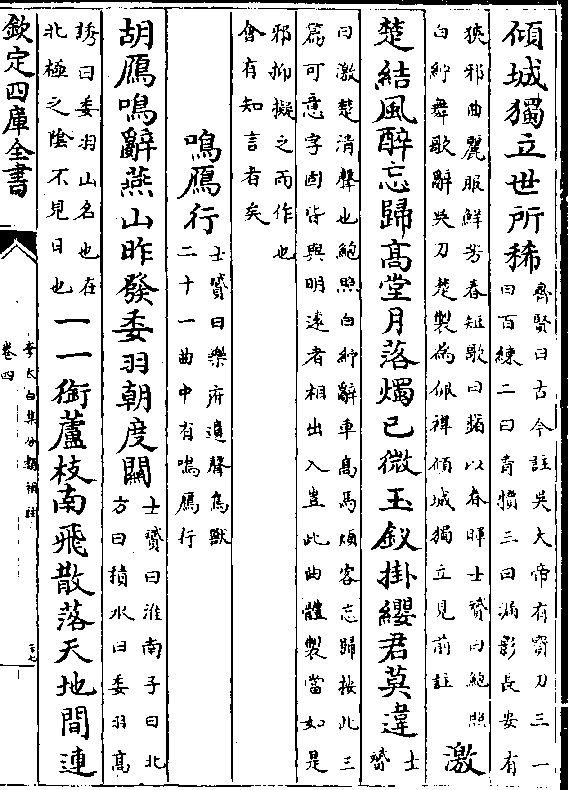 傾城獨立世所稀齊賢曰古今註吳大帝有寳刀三一
曰百練二曰青犢三曰漏影長安有
狹邪曲麗服鮮芳春短歌曰猶以春暉士贇曰鮑照
白紵舞歌辭吳刀楚製為佩褘傾城獨立見前註激
楚結風醉忘歸高堂月落燭已微玉釵掛纓君莫違士
贇
曰激楚清聲也鮑照白紵辭車髙馬煩客忘歸按此三
篇可意字固皆與明遠者相出入豈此曲體製當如是
邪抑擬之而作也
會有知言者矣
鳴鴈行士贇曰樂府遺聲鳥獸
二十一曲中有鳴鴈行
胡鴈鳴辭燕山昨發委羽朝度關士贇曰淮南子曰北
方曰積水曰委羽髙
誘曰委羽山名也在
北極之陰不見日也一一銜蘆枝南飛散落天地間連
欽定四庫全書
李太白集分類補註
卷四